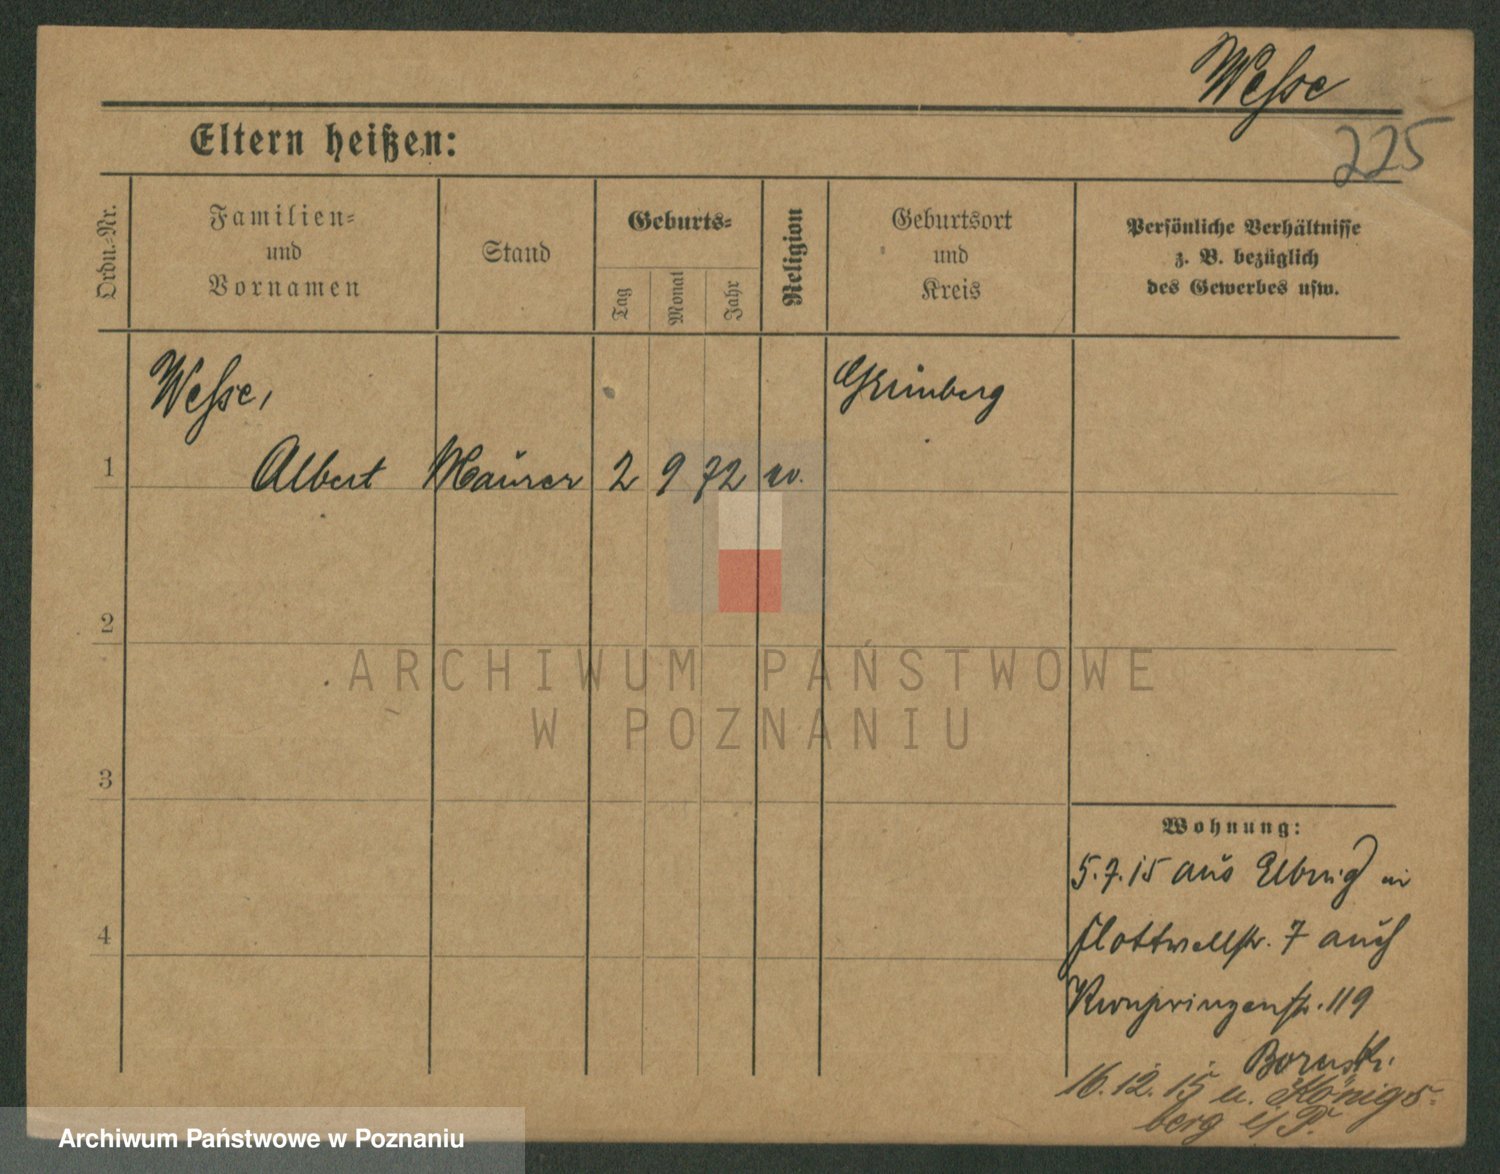 Wesse
225
Eltern heißen:
Ordn.-Nr.
Familien-
und
Vornamen
Stand
Geburts-
Tag
Monat
Jahr
Religion
Geburtsort
und
Kreis
Persönliche Verhältnisse
z. B. bezüglich
des Gewerbes usw.
Wesse,
Grünberg
1
Albert
Maurer
2
9
72
ev.
2
ARCHIWUM PAŃSTWOWE
W POZNANIU
3
Wohnung:
5.7.15 aus Elbing in
4
Flottwellstr. 7 auch
Kronprinzenstr. 119
16.12.15 n. Königs-
berg i/P.
Archiwum Państwowe w Poznaniu